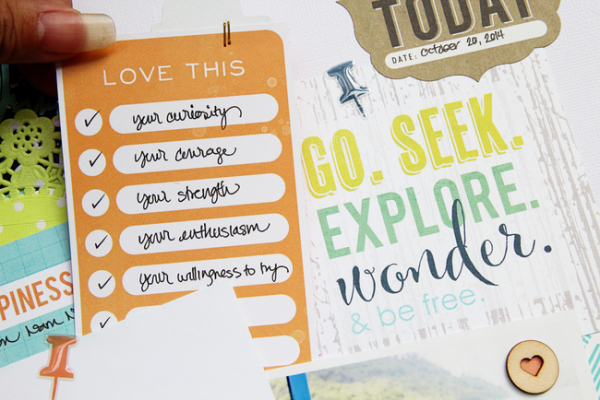 TODAY
DATE: October 20, 2014
LOVE THIS
your curiosity
your courage
your strength
your enthusiasm
your willingness to try
GO. SEEK.
EXPLORE.
wonder.
& be free.
PINESS